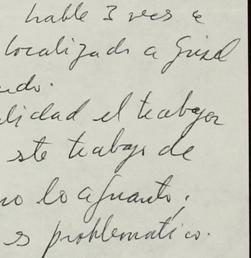 hable 3 veces a
localizado a Grisel
ndo.
lidad el trabajar
ste trabajo de
no lo aguanto,
es problematico.